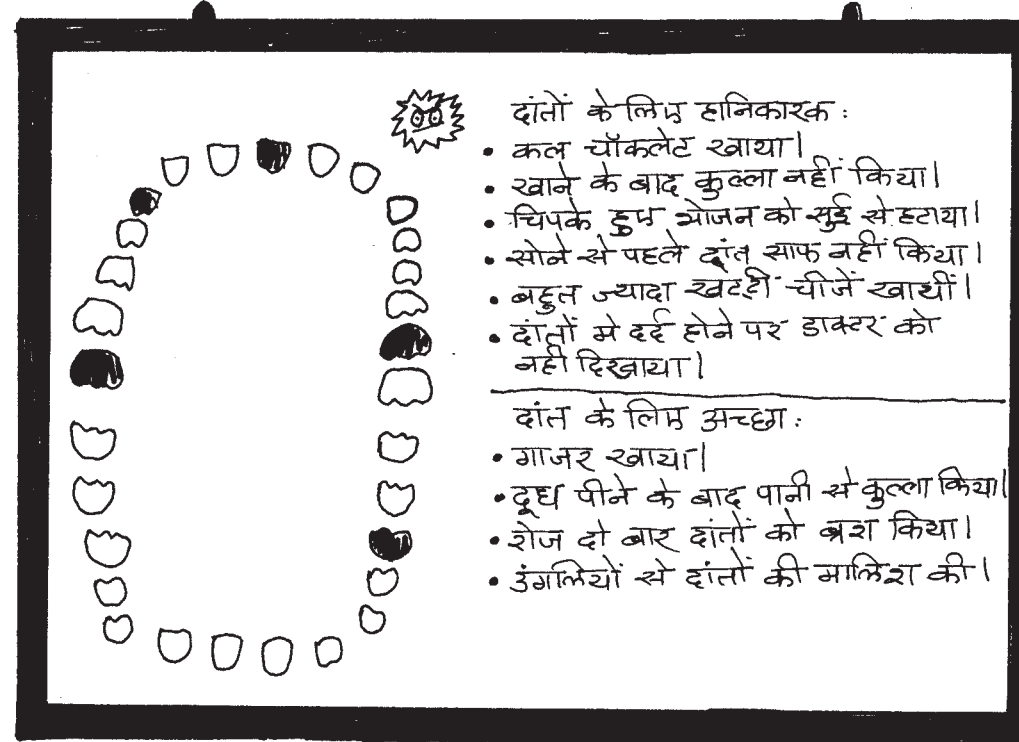 दांतों के लिए हानिकारक :
• कल चॉकलेट खाया।
• खाने के बाद कुल्ला नहीं किया।
• चिपके हुए भोजन को सुई से हटाया।
• सोने से पहले दांत साफ नहीं किया।
• बहुत ज्यादा खट्टी चीजें खायीं।
• दांतों में दर्द होने पर डाक्टर को
नहीं दिखाया।
दांत के लिए अच्छा :
• गाजर खाया।
• दूध पीने के बाद पानी से कुल्ला किया।
• रोज दो बार दांतों को ब्रश किया।
• उंगलियों से दांतों की मालिश की।